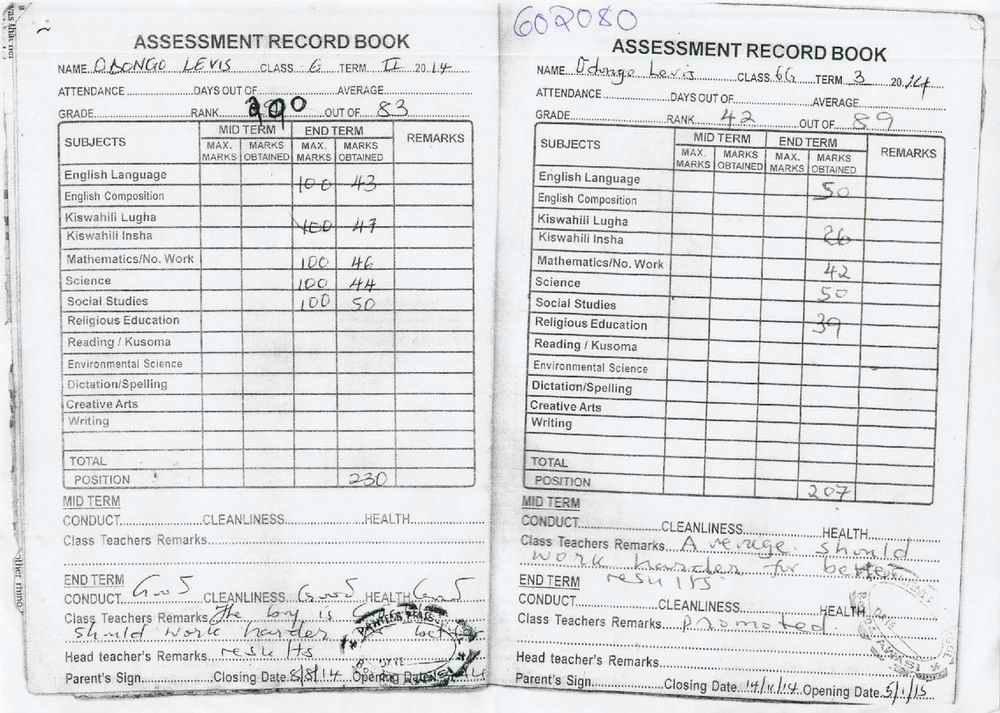 602080
ASSESSMENT RECORD BOOK
NAME ODONGO LEVIS CLASS 6 TERM II 2014
ATTENDANCE DAYS OUT OF AVERAGE
GRADE RANK OUT OF 83
SUBJECTS MID TERM END TERM REMARKS
MAX. MARKS MARKS OBTAINED MAX. MARKS MARKS OBTAINED
English Language 100 43
English Composition
Kiswahili Lugha
Kiswahili Insha 100 47
Mathematics/No. Work 100 46
Science 100 44
Social Studies 100 50
Religious Education
Reading / Kusoma
Environmental Science
Dictation/Spelling
Creative Arts
Writing
TOTAL
POSITION 230
MID TERM
CONDUCT CLEANLINESS HEALTH
Class Teachers Remarks
END TERM
CONDUCT Good CLEANLINESS Good HEALTH Good
Class Teachers Remarks The boy is
should work harder better
Head teacher's Remarks results
Parent's Sign Closing Date 8/8/14 Opening Date
ASSESSMENT RECORD BOOK
NAME Odongo Levis CLASS 6G TERM 3 2014
ATTENDANCE DAYS OUT OF AVERAGE
GRADE RANK 42 OUT OF 89
SUBJECTS MID TERM END TERM REMARKS
MAX. MARKS MARKS OBTAINED MAX. MARKS MARKS OBTAINED
English Language 50
English Composition
Kiswahili Lugha
Kiswahili Insha 26
Mathematics/No. Work 42
Science 50
Social Studies 39
Religious Education
Reading / Kusoma
Environmental Science
Dictation/Spelling
Creative Arts
Writing
TOTAL
POSITION 207
MID TERM
CONDUCT CLEANLINESS HEALTH
Class Teachers Remarks Average. Should
work harder for better
results
END TERM
CONDUCT CLEANLINESS HEALTH
Class Teachers Remarks promoted
Head teacher's Remarks
Parent's Sign Closing Date 14/11/14 Opening Date 5/1/15